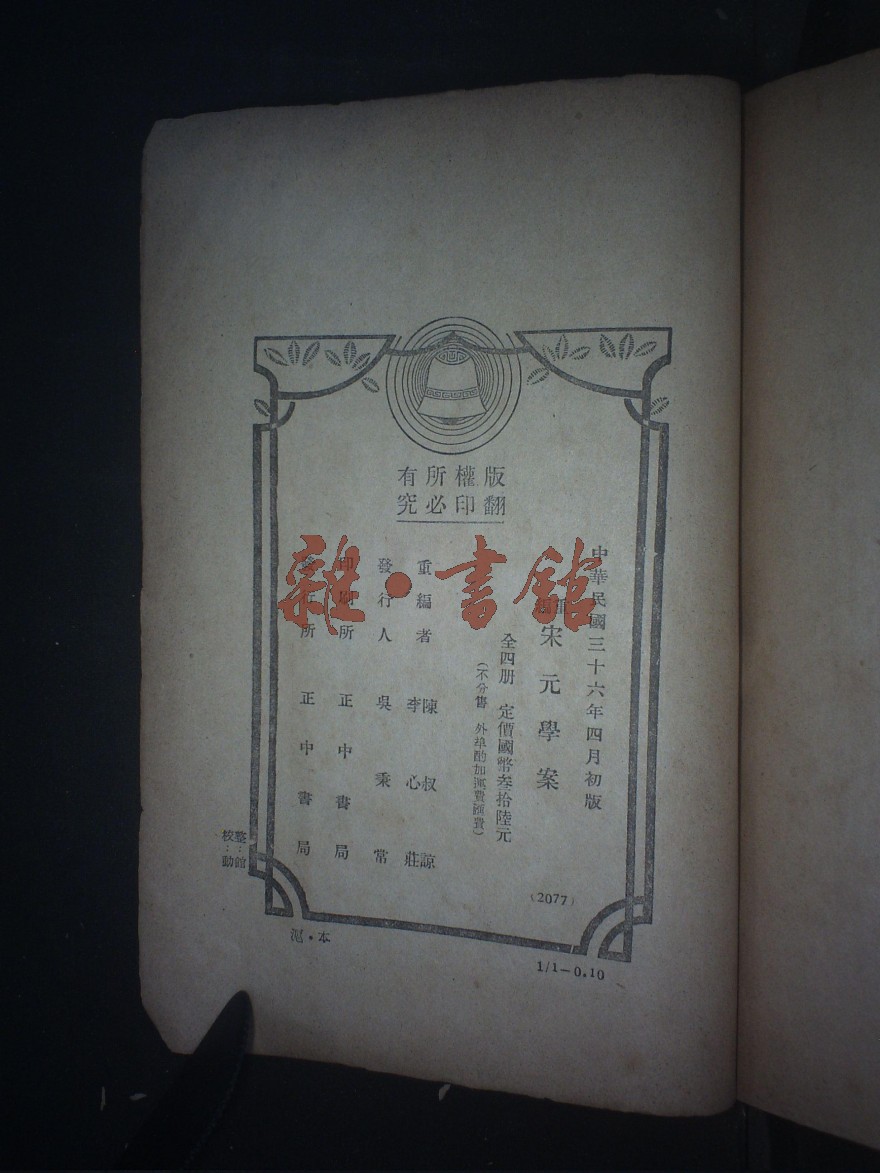 版權所有
翻印必究
中華民國三十六年四月初版
宋元學案
全四册 定價國幣叁拾陸元
(不分售 外埠酌加運費匯費)
(2077)
重編者 陳叔諒
李心莊
發行人 吳秉常
印刷所 正中書局
發行所 正中書局
整:館
校:勳
滬·本
1/1-0.10
雜·書館